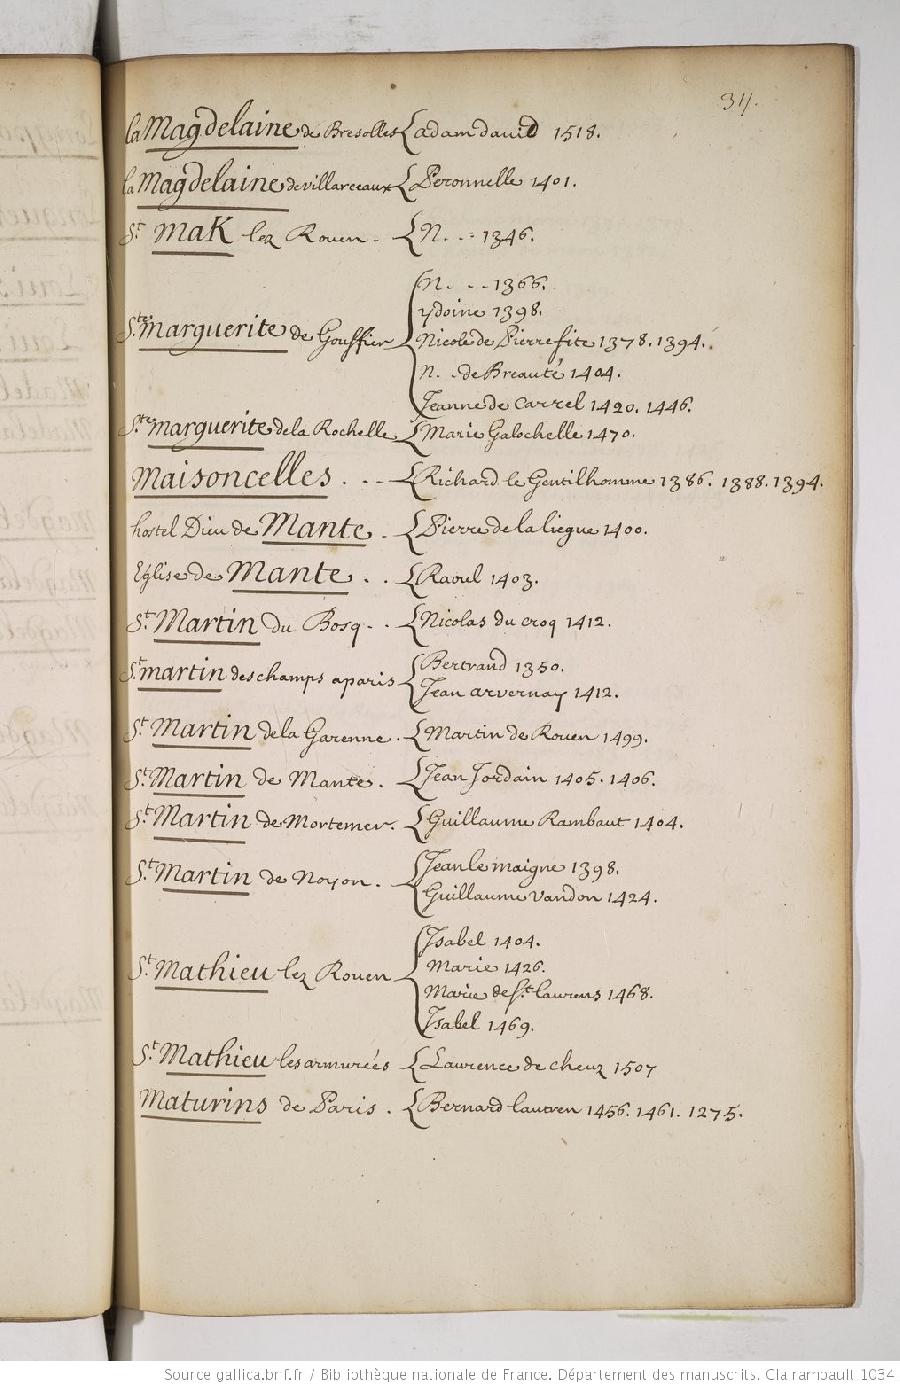 34.
la Magdelaine de Bresolles { adam david 1518.
la Magdelaine de villarceaux { Peronnelle 1401.
St. Mak lez Rouen . { N. . . 1346.
{ N. . . . 1366.
ydoine 1398.
Ste. Marguerite de Gouffier { Nicole de Pierrefite 1378. 1394.
N. . . de Breauté 1404.
Jeanne de Carrel 1420. 1446.
Ste. Marguerite de la Rochelle { Marie Galochelle 1470.
Maisoncelles . . . { Richard le Gentilhomme 1386. 1388. 1394.
hostel Dieu de Mante . { Pierre de la liegue 1400.
Eglise de Mante . . { Raoul 1403.
St. Martin du Bosq . . { Nicolas du croq 1412.
St. martin des champs a paris { Bertrand 1350.
Jean arvernay 1412.
St. Martin de la Garenne . { Martin de Rouen 1499.
St. Martin de Mante . { Jean Jordain 1405. 1406.
St. Martin de Mortemer . { Guillaume Rambaut 1404.
St. Martin de Noyon . { Jean le maigne 1398.
Guillaume Vandon 1424.
{ Isabel 1404.
Marie 1426.
St. Mathieu lez Rouen { Marie de St. laurens 1468.
Isabel 1469.
St. Mathieu les armurées { Laurence de cheuz 1507
Maturins de Paris . { Bernard lautren 1456. 1461. 1275.
Source gallica.bnf.fr / Bibliothèque nationale de France. Département des manuscrits. Clairambault 1034